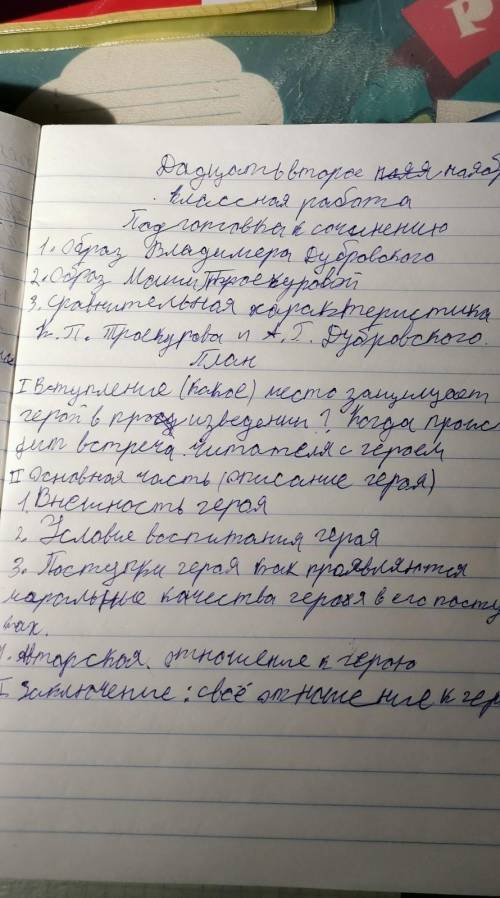 Дадцать второе ноябр
классная работа
Подготовка к сочинению
1. Образ Владимера Дубровского
2. Образ Маши Троекуровой
3. Сравнительная характеристика
К. П. Троекурова и А. Г. Дубровского.
План
I Вступление (какое) место занимает
герой в произведении? Когда проис
дит встреча читателя с героем
II Основная часть (описание героя)
1. Внешность героя
2. Условие воспитания героя
3. Поступки героя как проявляются
маральные качества героя в его посту
ках.
4. Авторская отношение к герою
I Заключение: своё отношение к гер